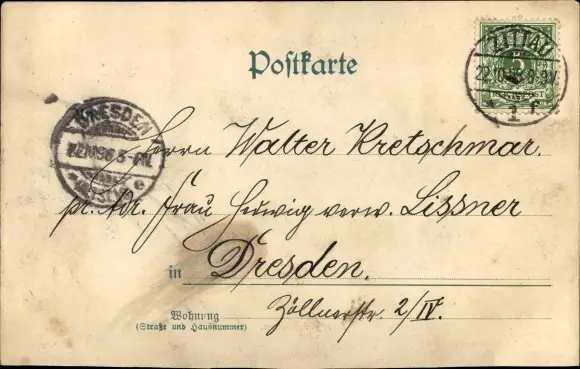 Postkarte
ZITTAU
5
22.10.
1
DRESDEN
Herrn Walter Kretschmar.
pr. Adr. Frau Hedwig verw. Lissner
in Dresden.
Wohnung
(Straße und Hausnummer)
Zöllnerstr. 2/IV.